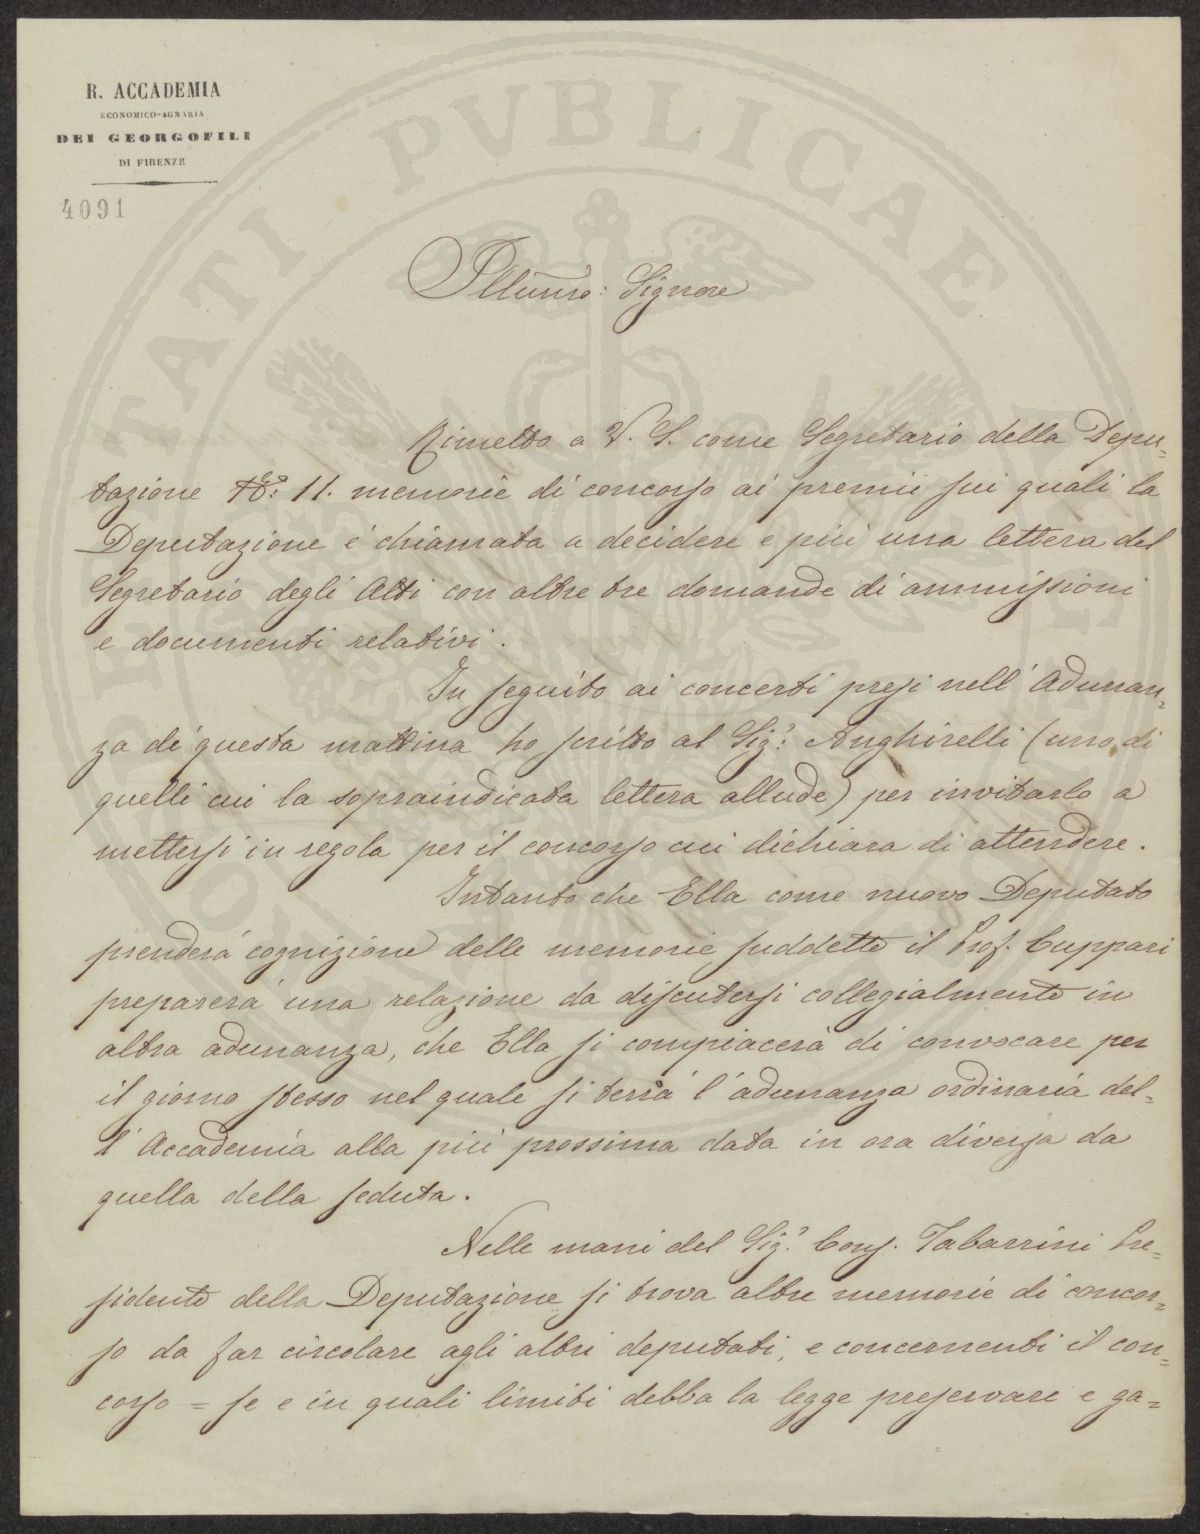 R. ACCADEMIA
ECONOMICO-AGRARIA
DEI GEORGOFILI
DI FIRENZE
4091
PROSPERITATI PUBLICAE AUGENDAE
Illumo: Signore
Rimetto a V. S. come Segretario della Depu-
tazione No: 11. memorie di concorso ai premii sui quali la
Deputazione è chiamata a decidere e più una lettera del
Segretario degli Atti con altre tre domande di ammissioni
e documenti relativi.
In seguito ai concerti presi nell'Adunan-
za di questa mattina ho scritto al Sigr: Anghirelli (uno di
quelli cui la sopraindicata lettera allude) per invitarlo a
mettersi in regola per il concorso cui dichiara di attendere.
Intanto che Ella come nuovo Deputato
prenderà cognizione delle memorie suddette il Prof. Cuppari
preparerà una relazione da discutersi collegialmente in
altra adunanza, che Ella si compiacerà di convocare per
il giorno stesso nel quale si terrà l'adunanza ordinaria del-
l'Accademia alla più prossima data in ora diversa da
quella della seduta.
Nelle mani del Sigr. Cons. Tabarrini Pre-
sidente della Deputazione si trova altre memorie di concor-
so da far circolare agli altri deputati, e concernenti il con-
corso = se e in quali limiti debba la legge preservare e ga=